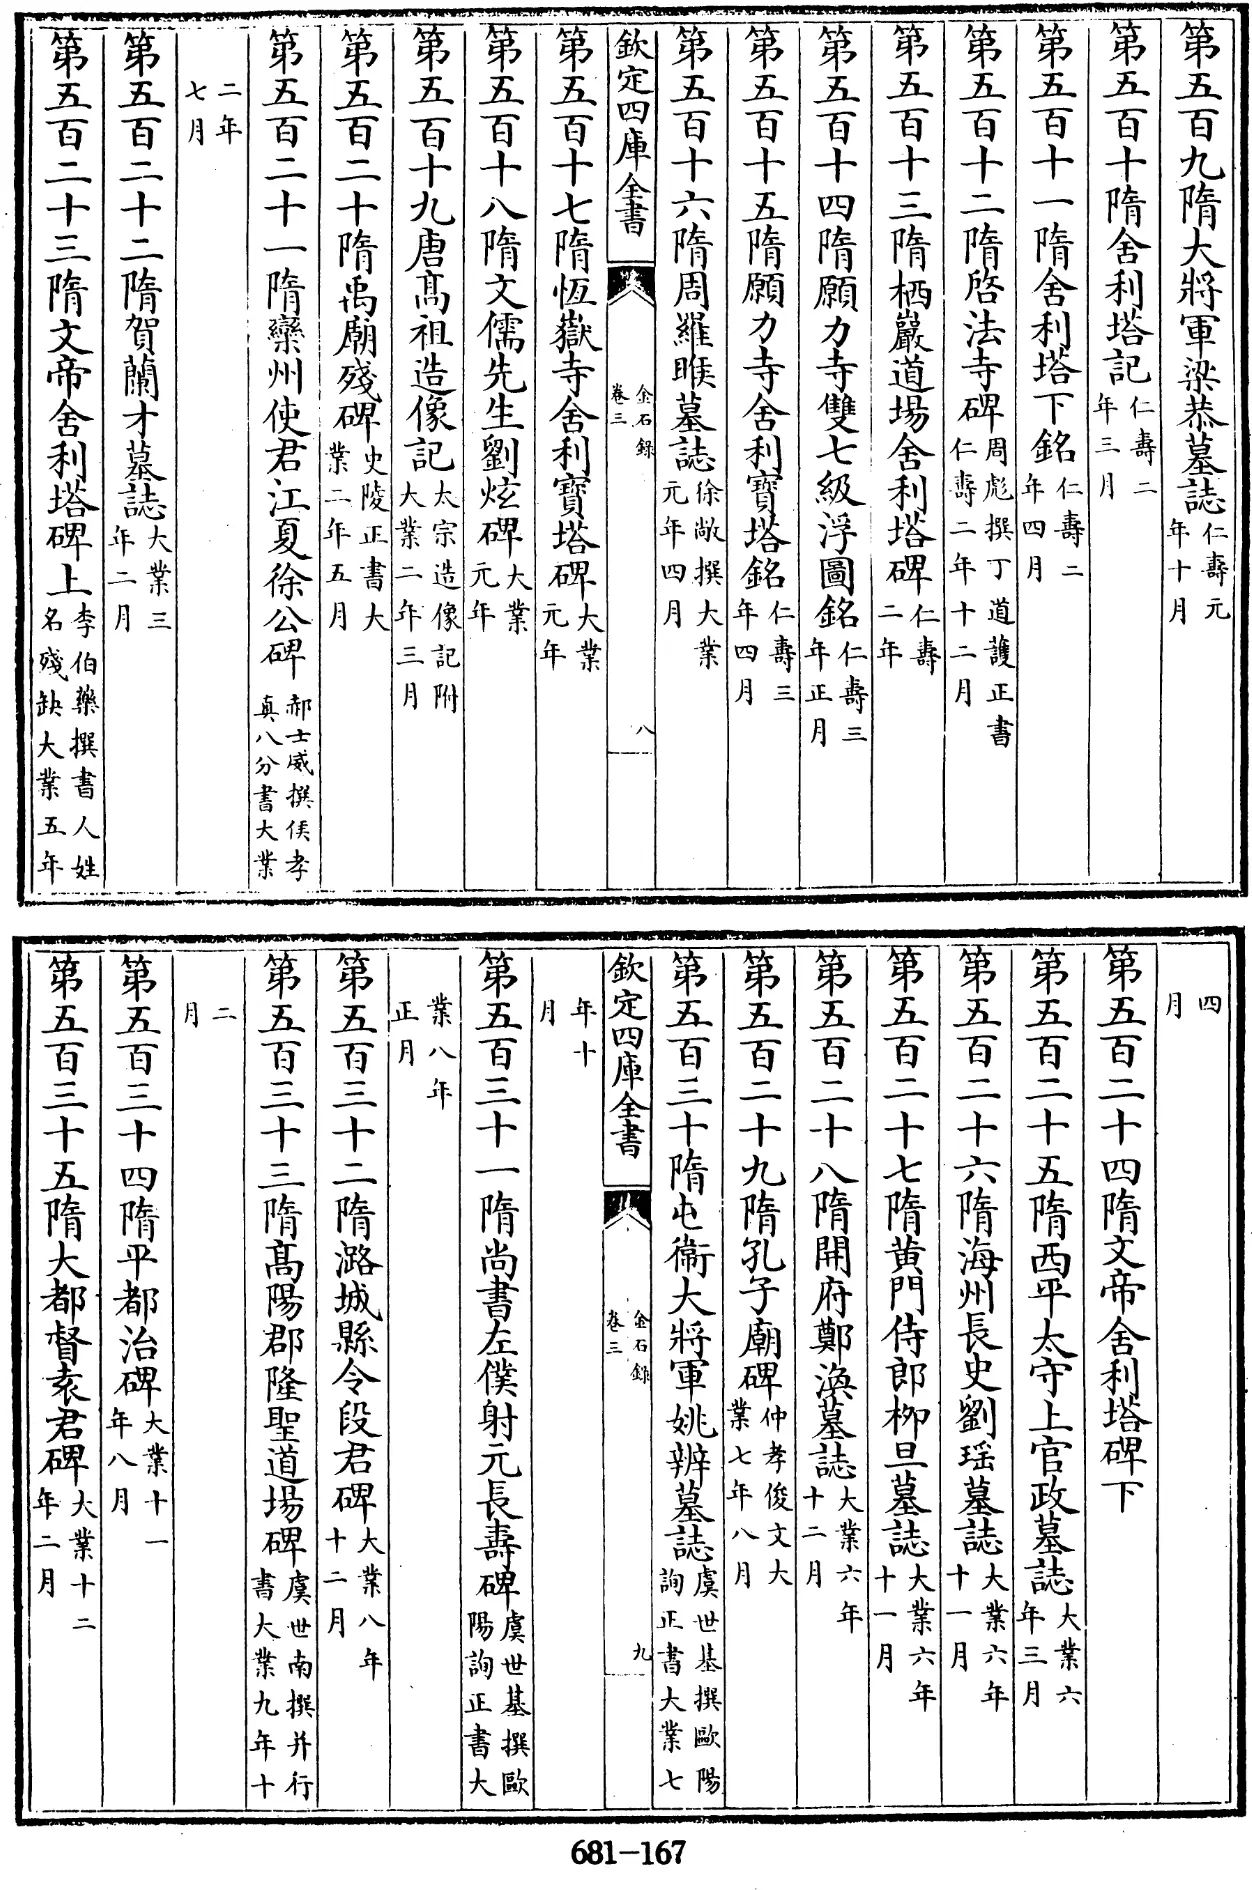 第五百九隋大將軍梁恭墓誌仁壽元年十月
第五百十隋舍利塔記仁壽二年三月
第五百十一隋舍利塔下銘仁壽二年四月
第五百十二隋啓法寺碑周彪撰丁道護正書仁壽二年十二月
第五百十三隋栖巖道場舍利塔碑仁壽二年
第五百十四隋願力寺雙七級浮圖銘仁壽三年正月
第五百十五隋願力寺舍利寶塔銘仁壽三年四月
第五百十六隋周羅睺墓誌徐敞撰大業元年四月
欽定四庫全書
金石錄
卷三
八
第五百十七隋恆嶽寺舍利寶塔碑大業元年
第五百十八隋文儒先生劉炫碑大業元年
第五百十九唐髙祖造像記太宗造像記附大業二年三月
第五百二十隋禹廟殘碑史陵正書大業二年五月
第五百二十一隋欒州使君江夏徐公碑郝士威撰侯孝真八分書大業
二年七月
第五百二十二隋賀蘭才墓誌大業三年二月
第五百二十三隋文帝舍利塔碑上李伯藥撰書人姓名殘缺大業五年
四月
第五百二十四隋文帝舍利塔碑下
第五百二十五隋西平太守上官政墓誌大業六年三月
第五百二十六隋海州長史劉瑶墓誌大業六年十一月
第五百二十七隋黄門侍郎栁旦墓誌大業六年十一月
第五百二十八隋開府鄭渙墓誌大業六年十二月
第五百二十九隋孔子廟碑仲孝俊文大業七年八月
第五百三十隋屯衞大將軍姚辨墓誌虞世基撰歐陽詢正書大業七
欽定四庫全書
金石錄
卷三
九
年十月
第五百三十一隋尚書左僕射元長壽碑虞世基撰歐陽詢正書大
業八年正月
第五百三十二隋潞城縣令段君碑大業八年十二月
第五百三十三隋髙陽郡隆聖道場碑虞世南撰并行書大業九年十
二月
第五百三十四隋平都治碑大業十一年八月
第五百三十五隋大都督袁君碑大業十二年二月
681-167